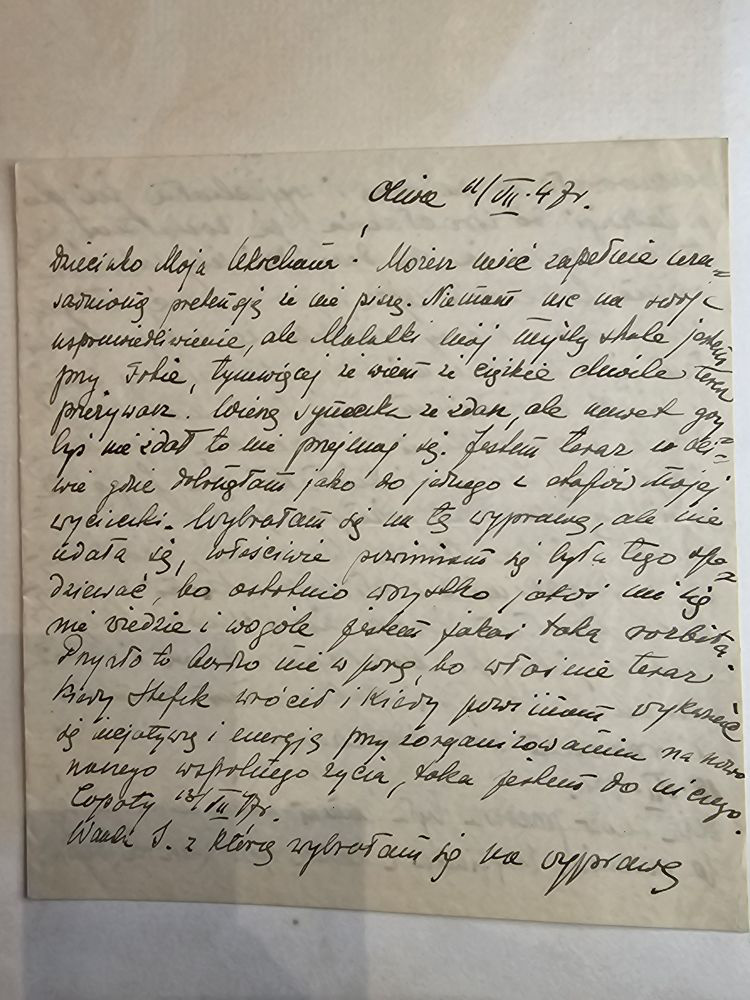 Oliwa 11/VII.47r.
Dziecinko Moja Ukochana! Możesz mieć zupełnie uza=
sadnioną pretensję że nie piszę. Niemam nic na swoje
usprawiedliwienie, ale Malutki mój myślą stale jestem
przy Tobie, tymwięcej że wiem że ciężkie chwile teraz
przeżywasz. Wierzę syneczku że zdasz, ale nawet gdy=
byś nie zdał to nie przejmuj się. Jestem teraz w Oli=
wie gdzie dobrnęłam jako do jednego z etapów mojej
wycieczki. Wybrałam się na tę wyprawę, ale nie
udała się, właściwie powinnam się była tego spo=
dziewać, bo ostatnio wszystko jakoś mi się
nie wiedzie i wogóle jestem jakaś taka rozbita.
Przyszło to bardzo nie w porę, bo właśnie teraz
kiedy Stefek wrócił i kiedy powinnam wykazać
się inicjatywą i energją przy zorganizowaniu na nowo
naszego wspólnego życia, taka jestem do niczego.
Sopoty 13/VII 47r.
Wanda S. z którą wybrałam się na wyprawę